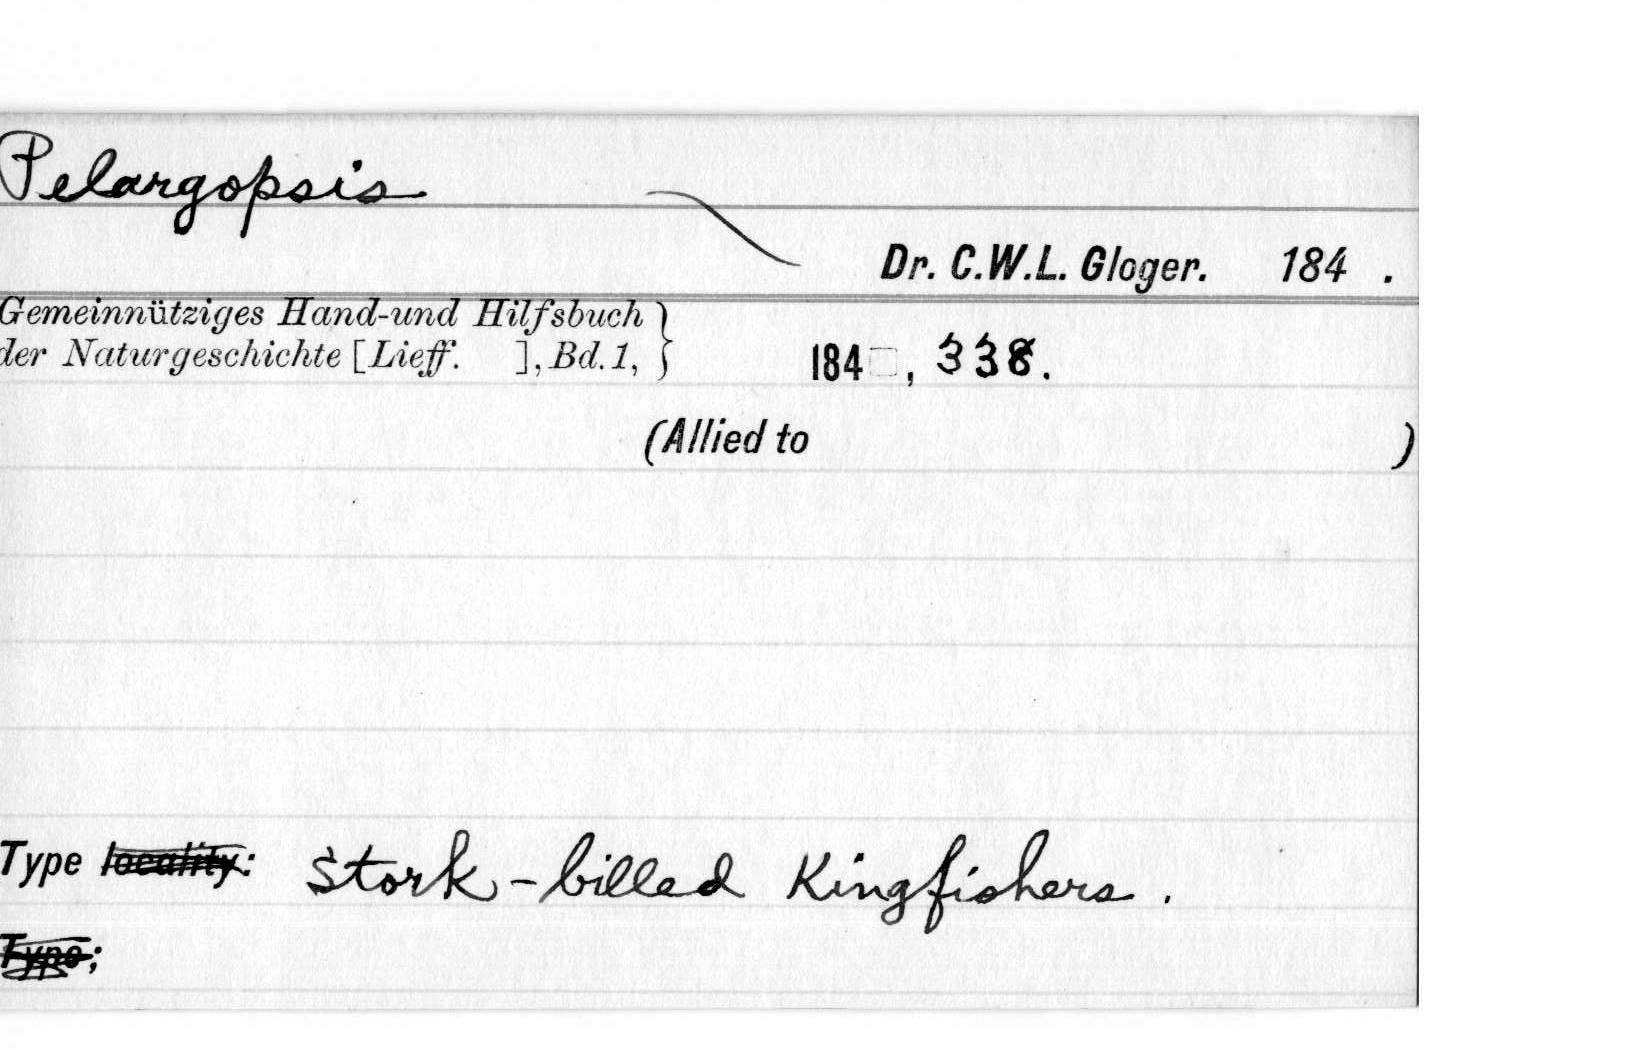 Pelargopsis
Dr. C.W.L. Gloger. 184 .
Gemeinnütziges Hand-und Hilfsbuch
der Naturgeschichte [Lieff. ], Bd. 1, } 184 , 338.
(Allied to )
Type locality: Stork-billed Kingfishers.
Type;